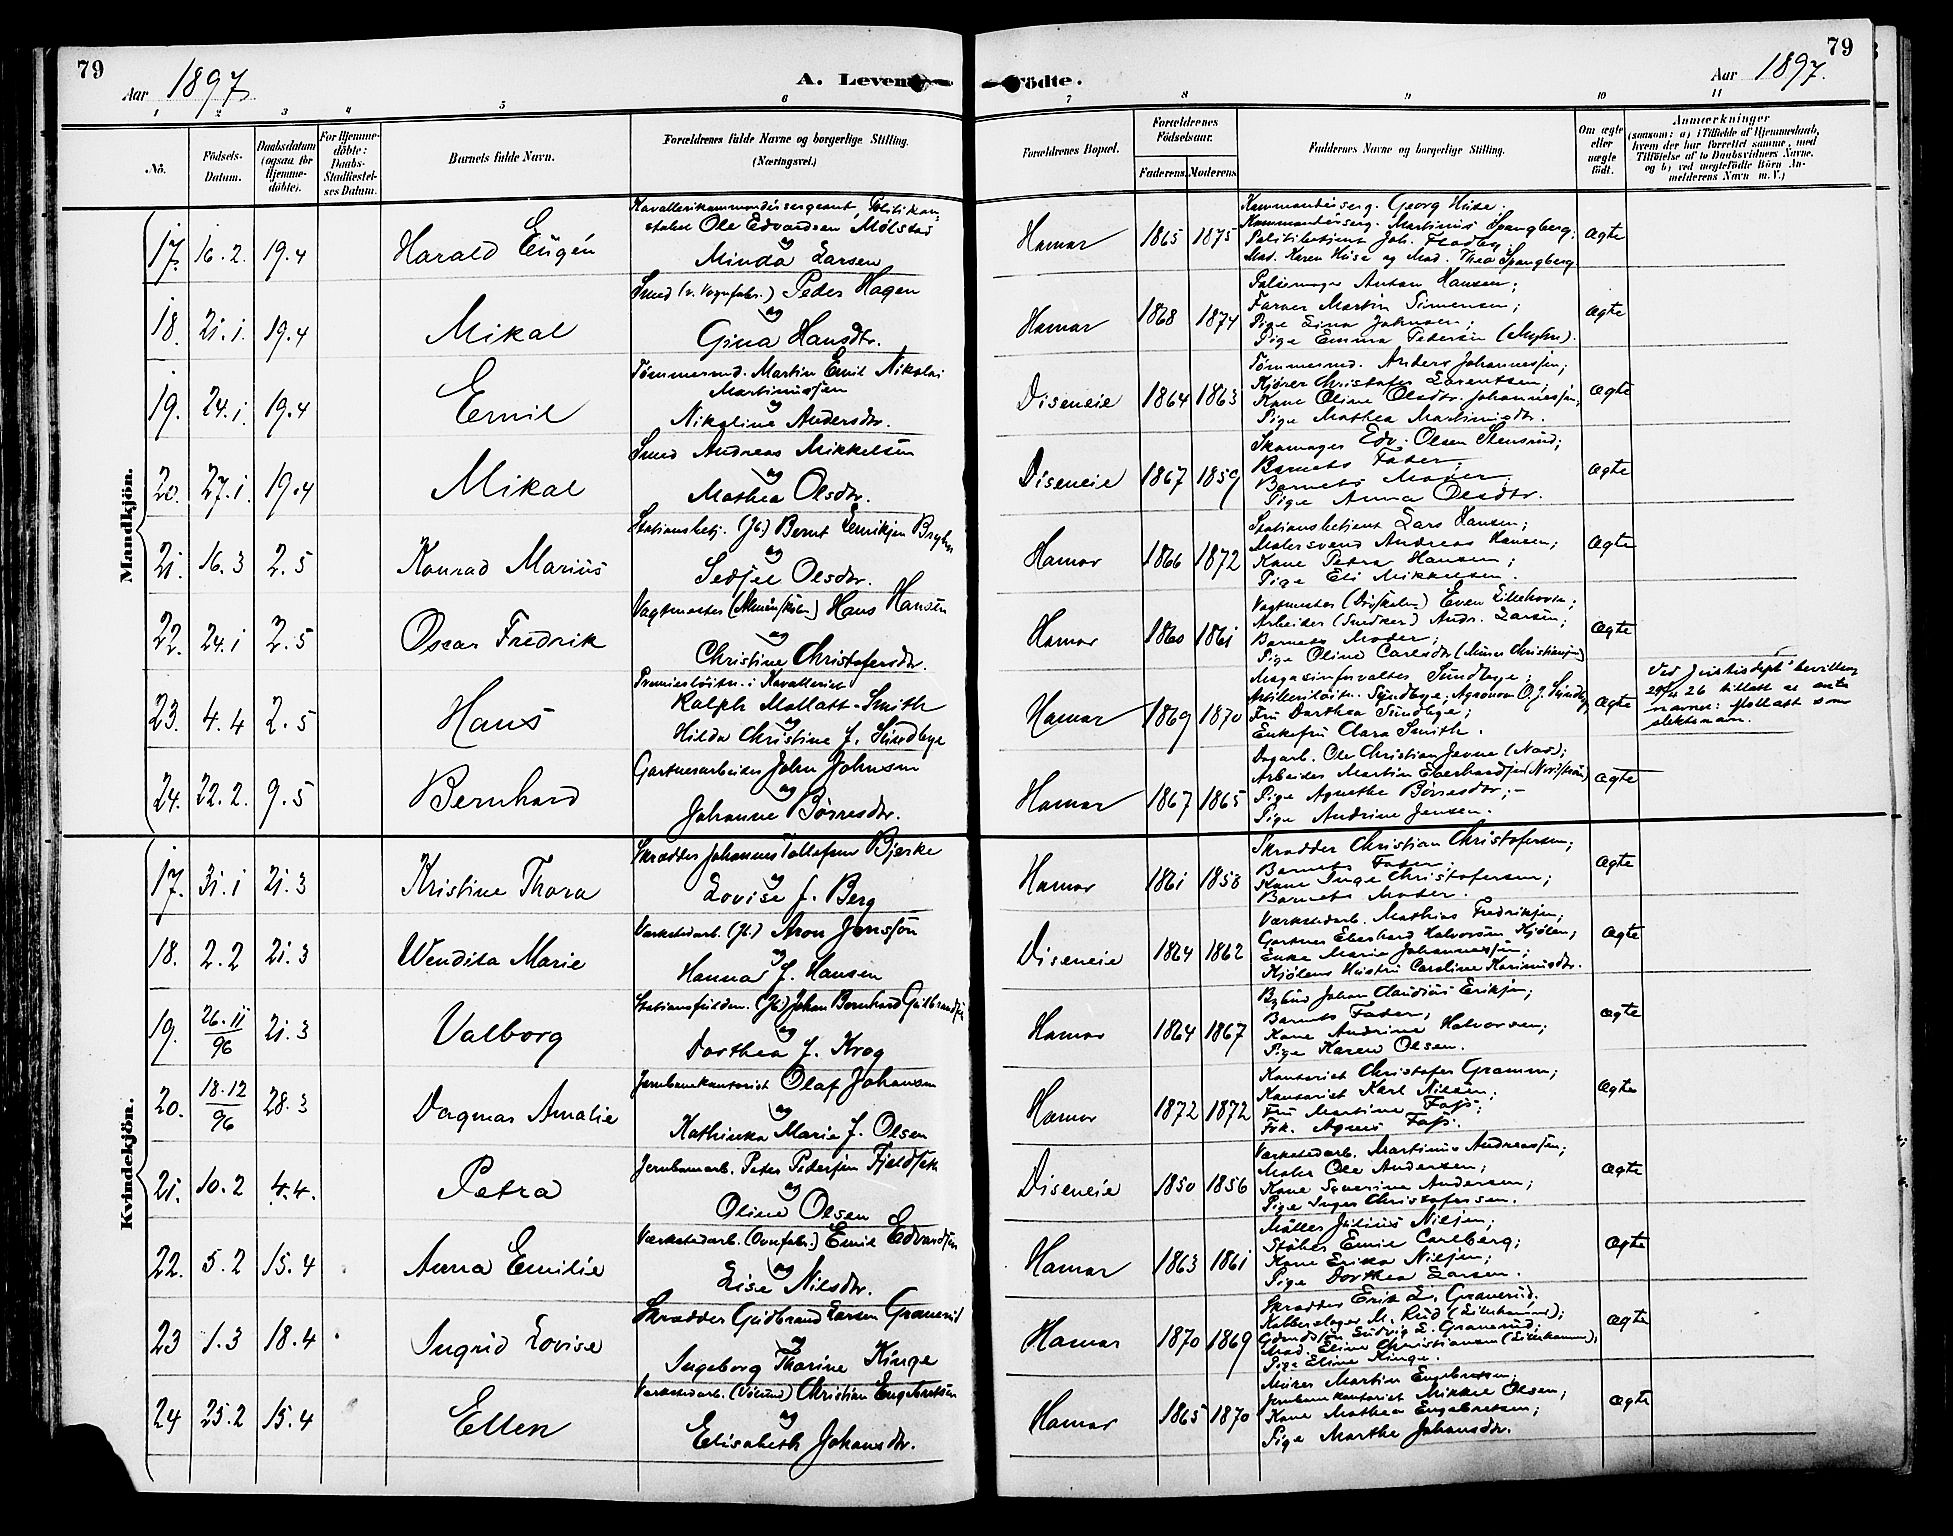 79
Aar 1897
A. Levende
Födte.
Aar 1897.
79
1 2 3 4 5 6 7 8 9 10 11
No.
Födsels-Datum.
Daabsdatum (ogsaa for Hjemmedöbte).
For Hjemmedöbte: Daabs-Stadfæstelses Datum.
Barnets fulde Navn.
Forældrenes fulde Navne og borgerlige Stilling. (Næringsvei.)
Forældrenes Bopæl.
Forældrenes Födselsaar.
Faderens. Moderens.
Faddernes Navne og borgerlige Stilling.
Om ægte eller uægte födt.
Anmærkninger
(saasom: a) i Tilfælde af Hjemmedaab, hvem der har forrettet samme, med Tilföielse af to Daabsvidners Navne, og b) ved uægtefödte Börn Anmelderens Navn m. V.)
Mandkjön.
17. 16.2. 19.4 Harald Eugén
Ole Edvardsen Mølstad
og
Minda Larsen
Hamar 1865 1875
Kommandérserg. Georg Huse.
Kommandérserg. Martinius Spangberg;
Politibetjent Joh. Flodby.
Mad. Karen Huse og Mad. Thea Spangberg
Ægte
18. 21.1. 19.4 Mikal
Smed (v. Vognfabr.) Peder Hagen
og
Gina Hansdtr.
Hamar 1868 1874
Pølsemager Anton Hansen;
Farver Martin Simensen;
Pige Lina Johnsen;
Pige Emma Petersen (Myhr).
Ægte
19. 24.1. 19.4 Emil
Tømmermd. Martin Emil Nikolai
Martinussen
og
Nikoline Andersdtr.
Diseneie 1864 1863
Tømmermd. Anders Johannessen;
Kjører Christofer Lorentsen;
Kone Oline Olsdtr. Johannessen;
Pige Mathea Martinusdtr.
Ægte
20. 27.1. 19.4 Mikal
Smed Andreas Mikkelsen
og
Mathea Olsdtr.
Diseneie 1867 1859
Skomager Edv. Olsen Stensrud;
Barnets Fader;
Barnets Moder;
Pige Anna Olsdtr.
Ægte
21. 16.3 2.5 Konrad Marius
Stationsbetj. (Jb.) Bernt Henriksen
og
Sedsel Olsdtr.
Hamar 1866 1872
Stationsbetjent Lars Hansen;
Malersvend Andreas Hansen;
Kone Petra Hansen;
Pige Eli Mikkelsen.
Ægte
22. 24.1 2.5 Oscar Fredrik
Vagtmester Hans Hansen
og
Christine Christofersdtr.
Hamar 1860 1861
Vagtmester Even Lillehovin;
Arbeider Andr. Larsen;
Barnets Moder;
Pige Oline Carlsdtr.
Ægte
23. 4.4 2.5 Hans
Premierløitn. i Kavalleriet
Ralph Mollatt-Smith
og
Hilda Christine f. Sundbye
Hamar 1869 1870
Magasinforvalter Sundbye;
Artilleriløitn. Sundbye, Agronom O. J. Sundby
Fru Dorthea Sundbye;
Enkefru Clara Smith.
Ægte
Ved Justisdept's bevilling
26 tillatt at anta
navnet: Mollatt som
slektsnavn.
24. 22.2. 9.5 Bernhard
Gartnerarbeider John Johnsen
og
Johanne Børresdtr.
Hamar 1867 1865
Dagarb. Ole Christian Jevne;
Arbeider Martin Eberhardsen
Pige Agnethe Børresdtr;
Pige Andrine Jensen.
Ægte
Kvindekjön.
17. 31.1 21.3 Kristine Thora
Skrædder Johannes Tollefsen Bjerke
og
Lovise f. Berg
Hamar 1861 1858
Skrædder Christian Christofersen;
Barnets Fader;
Kone Inge Christofersen;
Barnets Moder.
Ægte
18. 2.2 21.3 Wendita Marie
Værkstedarb. (Jb.) Aron Jonsson
og
Hanna f. Hansen
Diseneie 1864 1862
Værkstedarb. Mathias Fredriksen;
Gartner Eberhard Halvorsen Kjølen;
Enke Maria Johannessen;
Kjølens Hustru Caroline Karinusdtr.
Ægte
19. 26.11/96 21.3 Valborg
Stationsfuldm. (Jb.) Johan Bernhard Gulbrandsen
og
Dorthea f. Krog
Hamar 1864 1867
Bybud Johan Claudius Eriksen;
Barnets Fader;
Kone Andrine Halvorsen;
Pige Karen Olsen.
Ægte
20. 18.12/96 28.3 Dagmar Amalie
Jernbanekontorist Olaf Johansen
og
Kathinka Marie f. Olsen
Hamar 1872 1872
Kontorist Christofer Gramm;
Kontorist Karl Nilsen;
Fru Martine Foss;
Frk. Agnes Foss.
Ægte
21. 10.2 4.4. Petra
Jernbanearb. Peter Pedersen Fjeldsek
og
Oline Olsen
Diseneie 1850 1856
Værkstedarb. Martinus Andreassen;
Maler Ole Andersen;
Kone Severine Andersen;
Pige Inger Christofersen.
Ægte
22. 5.2 15.4 Anna Emilie
Værkstedarb. (Ovnfabr.) Emil Edvardsen
og
Lise Nilsdtr.
Hamar 1863 1861
Møller Julius Nilsen;
Støber Emil Carlberg;
Kone Erika Nilsen;
Pige Dorthea Larsen.
Ægte
23 1.3 18.4 Ingrid Lovise
Skrædder Gudbrand Larsen Granerud
og
Ingeborg Thorine Kinge
Hamar 1870 1869
Skrædder Erik L. Granerud;
Kobberslager M. Rud (Lillehammer);
Ludvig L. Granerud;
Mad. Eline Christiansen (Lillehammer);
Pige Eline Kinge.
Ægte
24 25.2 15.4 Ellen
Værkstedarb. Christian Engebretsen
og
Elisabeth Johansdtr.
Hamar 1865 1870
Murer Martin Engebretsen;
Jernbanekontorist Mikkel Olsen;
Kone Mathea Engebretsen;
Pige Marthe Johansdtr.
Ægte